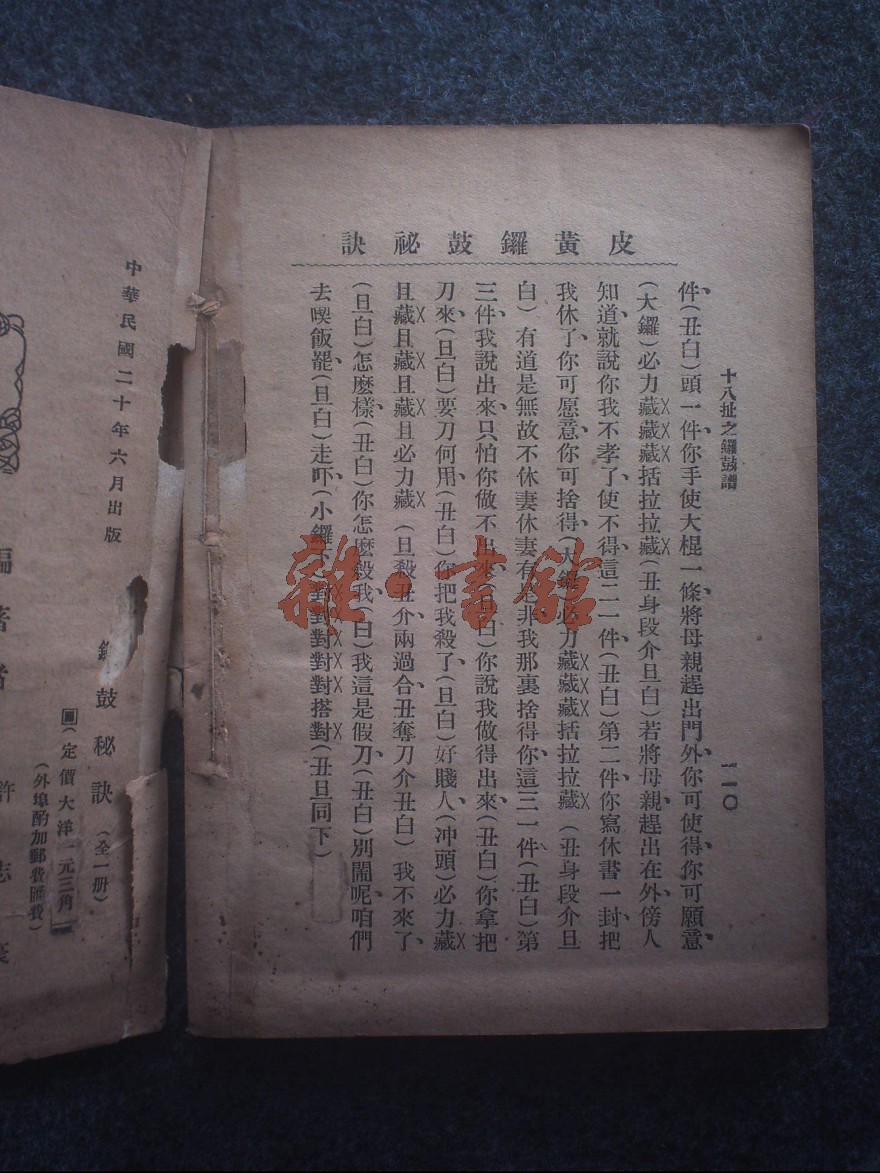 皮黃鑼鼓祕訣
十八扯之鑼鼓譜
一一〇
件、(丑白)頭一件、你手使大棍一條、將母親趕出門外、你可使得、你可願意、
(大鑼)必力藏藏藏括拉拉藏(丑身段介旦白)若將母親、趕出在外、傍人
知道、就說你我不孝了、使不得、這二一件、(丑白)第二件、你寫休書一封、把
我休了、你可愿意、你可捨得、(大鑼)必力藏藏藏括拉拉藏(丑身段介旦
白)有道是無故不休妻、休妻有是非、我那裏捨得你、這三一件(丑白)第
三件、我說出來、只怕你做不出來、(旦白)你說我做得出來、(丑白)你拿把
刀來、(旦白)要刀何用、(丑白)你把我殺了、(旦白)好賤人(沖頭)必力藏
且藏且藏且藏且必力藏(旦殺丑介兩過合丑奪刀介丑白)我不來了、
(旦白)怎麼樣、(丑白)你怎麼殺我、(白)我這是假刀、(丑白)別鬧呢、咱們
去喫飯罷、(旦白)走吓、(小鑼下)對對對對對搭對(丑旦同下)
中華民國二十年六月出版
鼓秘訣(全一册)
(定價大洋一元三角)
(外埠酌加郵費匯費)
編著者 許志豪
雜·書館